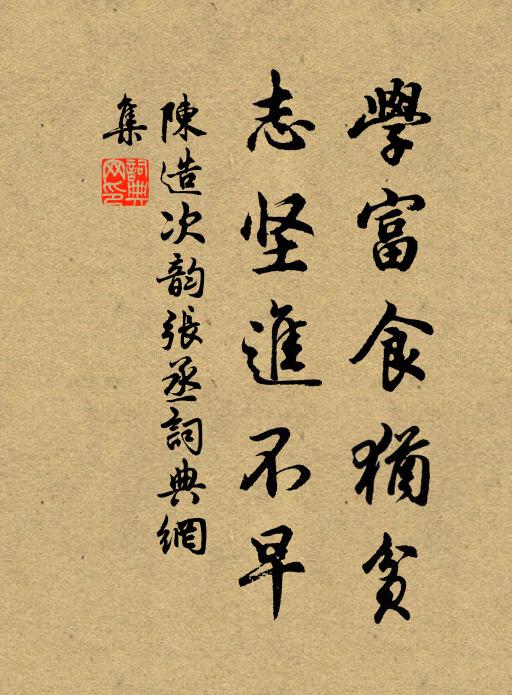 學富食猶貧
志坚進不早
陳造次韵張丞詞典網
集
詞典网印